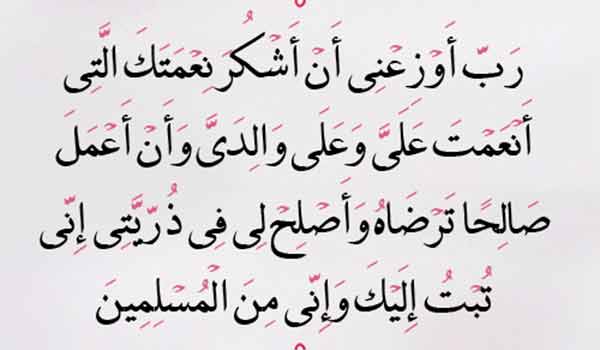 رَبِّ أَوْزِعْنِی أَنْ أَشْکُرَ نِعْمَتَکَ الَّتِی
أَنْعَمْتَ عَلَیَّ وَعَلَی وَالِدَیَّ وَأَنْ أَعْمَلَ
صَالِحًا تَرْضَاهُ وَأَصْلِحْ لِی فِی ذُرِّیَّتِی إِنِّی
تُبْتُ إِلَیْکَ وَإِنِّی مِنَ الْمُسْلِمِینَ